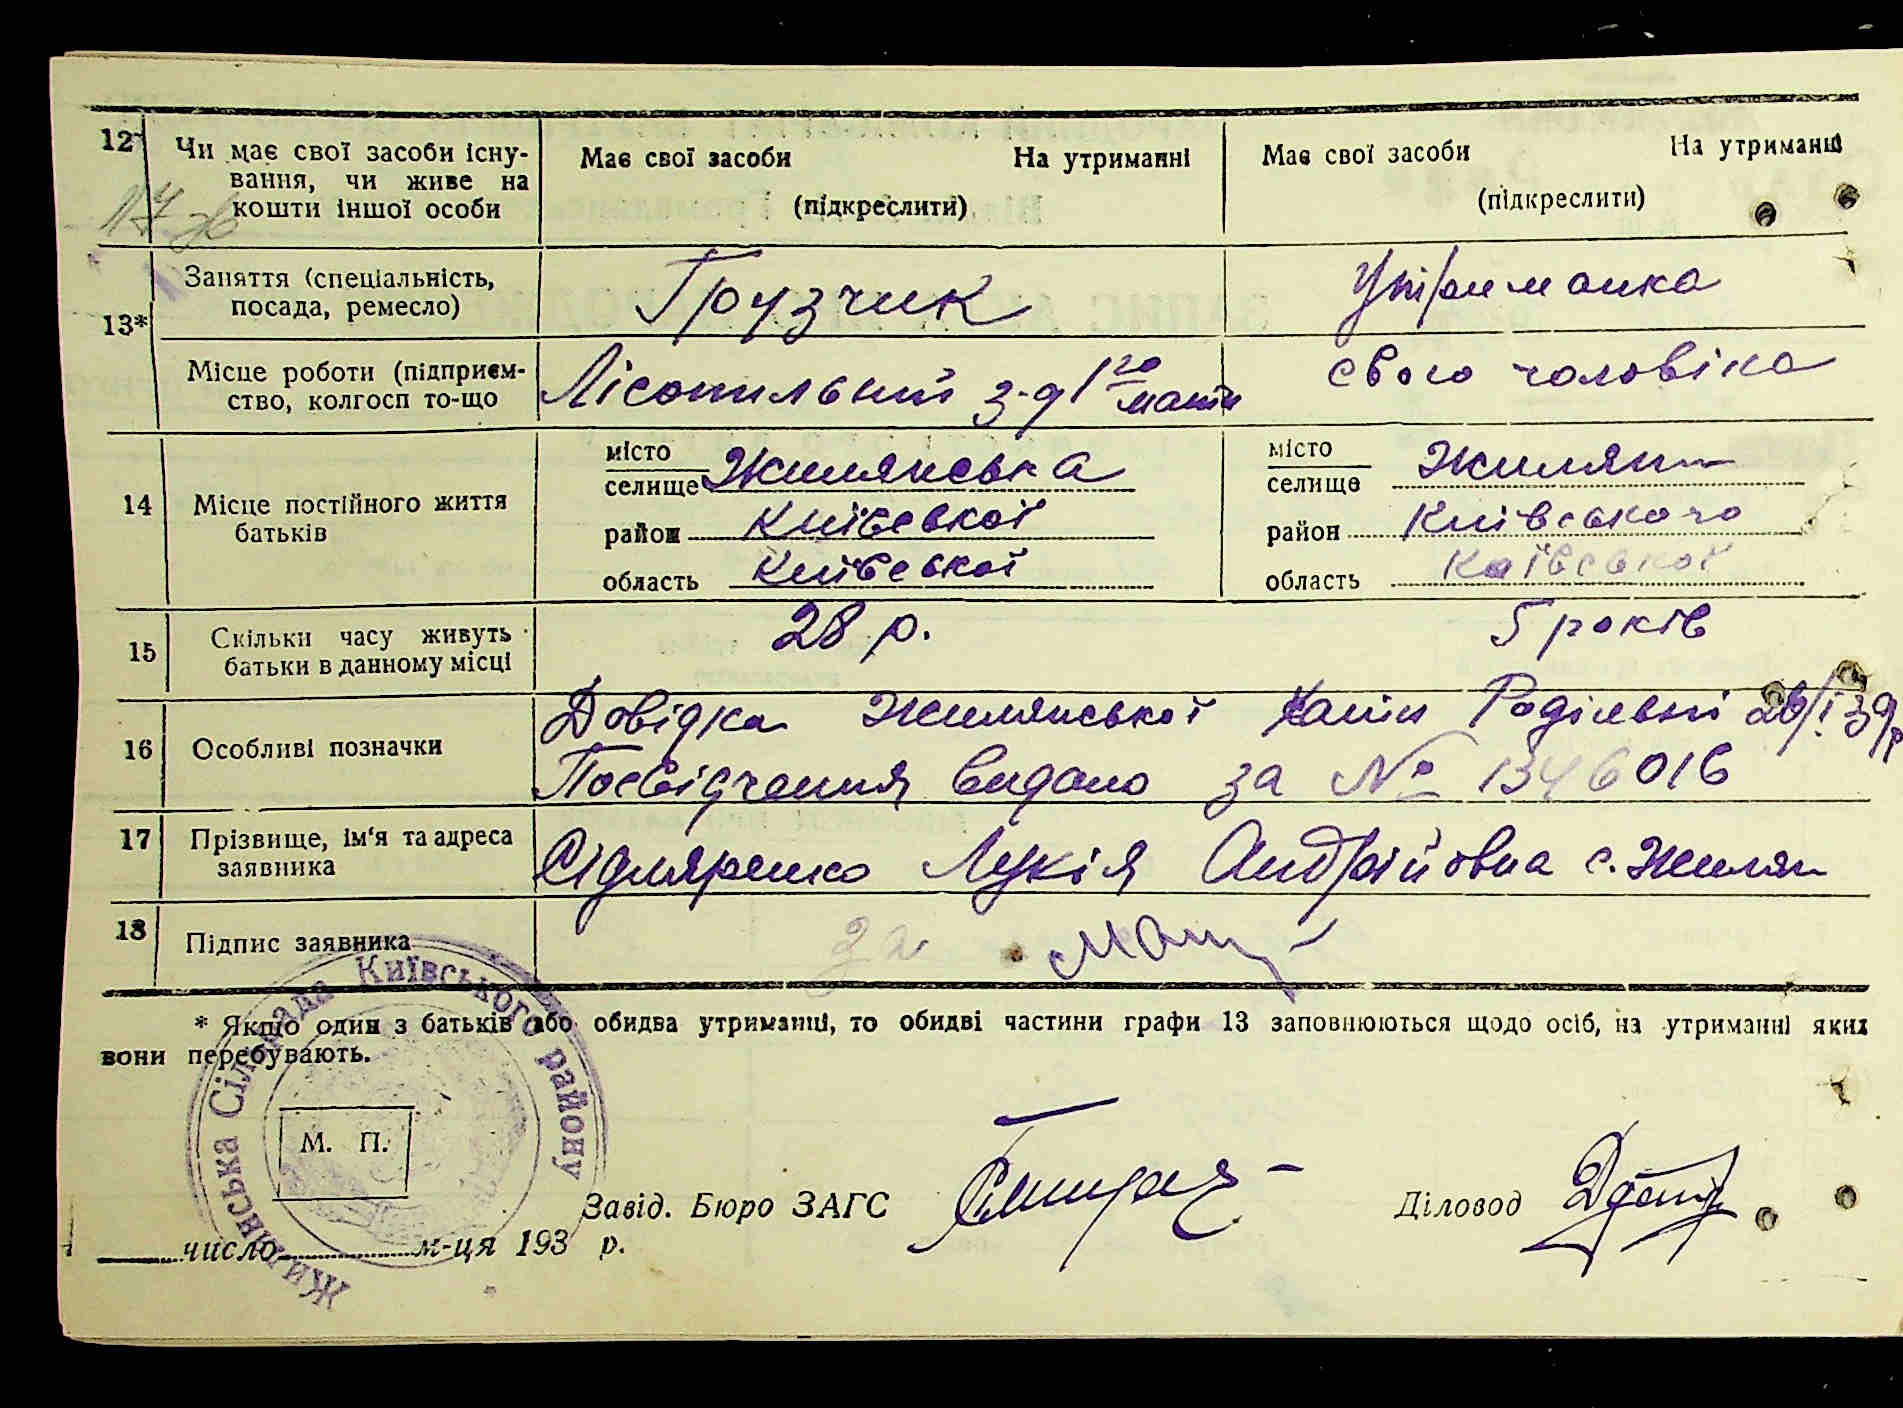 12
Чи має свої засоби існу-
вання, чи живе на
кошти іншої особи
Має свої засоби На утриманні
(підкреслити)
Має свої засоби На утриманні
(підкреслити)
13*
Заняття (спеціальність,
посада, ремесло)
Грузчик
Утриманка
Місце роботи (підприєм-
ство, колгосп то-що
Лісопильний з-д 1го
свого чоловіка
14
Місце постійного життя
батьків
місто
селище Жилянська
район Київської
область Київської
місто
селище Жиляни
район Київського
область Київської
15
Скільки часу живуть
батьки в данному місці
28 р.
5 років
16
Особливі позначки
Довідка Жилянської Родільні 26/I 39р
Посвідчення видано за № 1346016
17
Прізвище, ім'я та адреса
заявника
Сідляренко Лукія Андрійовна с. Жиляни
18
Підпис заявника
за
* Якщо один з батьків або обидва утриманці, то обидві частини графи 13 заповнюються щодо осіб, на утриманні яких
вони перебувають.
Жилянська Сільрада Київського району
М. П.
Завід. Бюро ЗАГС
Діловод
число м-ця 193 р.